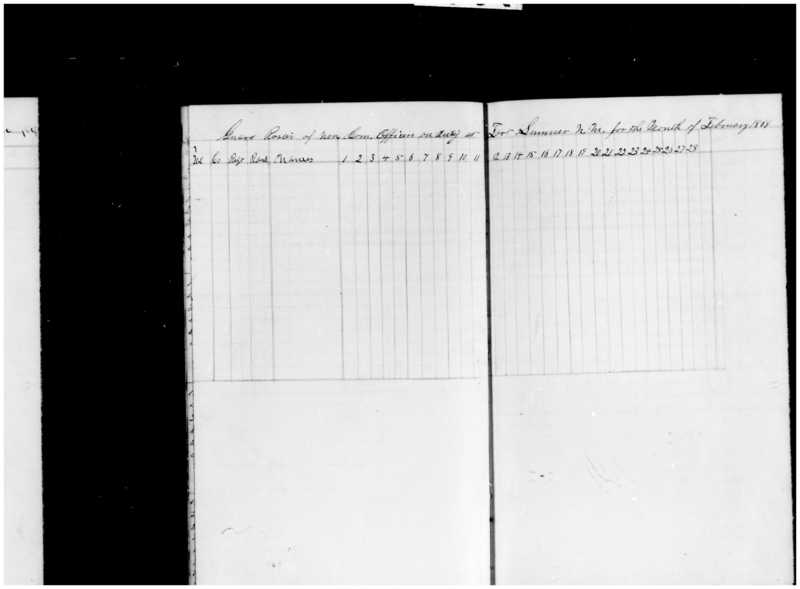 Guard Roster of Non Com. Officers on duty at Fort Sumner N. Me. for the Month of February
No Co Regt Rank Names 1 2 3 4 5 6 7 8 9 10 11 12 13 14 15 16 17 18 19 20 21 22 23 24 25 26 27 28